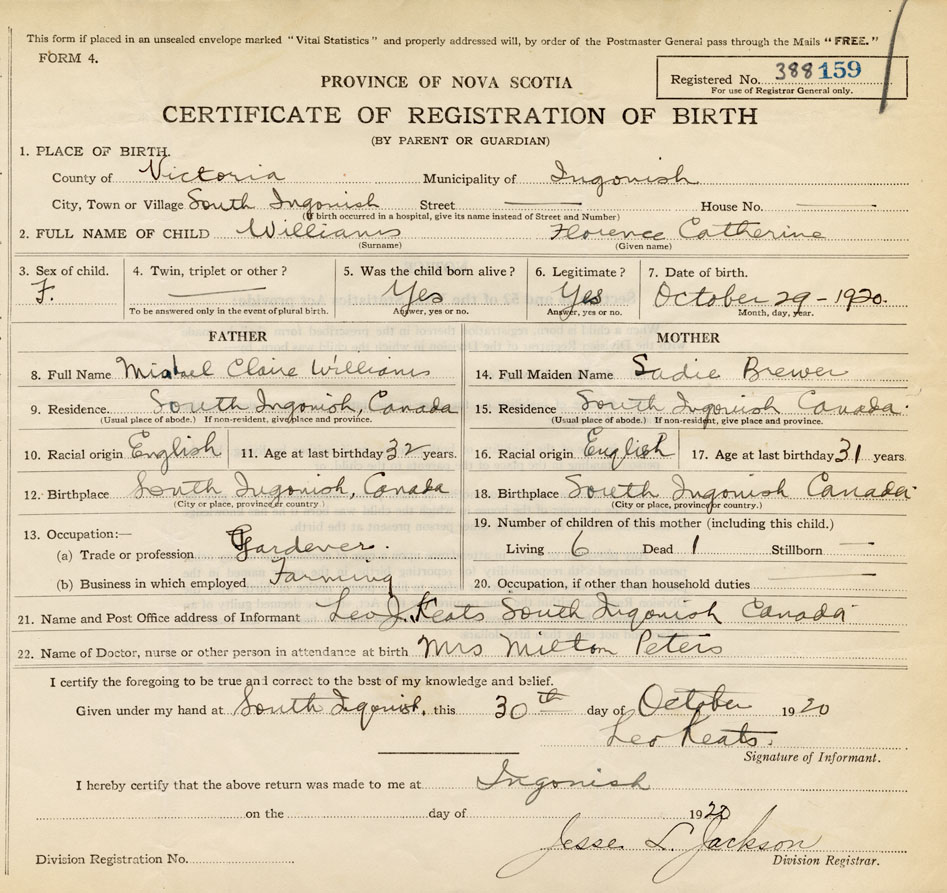 This form if placed in an unsealed envelope marked "Vital Statistics" and properly addressed will, by order of the Postmaster General pass through the Mails "FREE."
FORM 4.
Registered No. 388 159
For use of Registrar General only.
PROVINCE OF NOVA SCOTIA
CERTIFICATE OF REGISTRATION OF BIRTH
(BY PARENT OR GUARDIAN)
1. PLACE OF BIRTH.
County of Victoria Municipality of Ingonish
City, Town or Village South Ingonish Street House No.
(If birth occurred in a hospital, give its name instead of Street and Number)
2. FULL NAME OF CHILD Williams Florence Catherine
(Surname) (Given name)
3. Sex of child. 4. Twin, triplet or other? 5. Was the child born alive? 6. Legitimate? 7. Date of birth.
F. Yes Yes October 29-1920.
To be answered only in the event of plural birth. Answer, yes or no. Answer, yes or no. Month, day, year.
FATHER MOTHER
8. Full Name Michael Claire Williams 14. Full Maiden Name Sadie Brewer
9. Residence. South Ingonish, Canada 15. Residence South Ingonish Canada
(Usual place of abode.) If non-resident, give place and province. (Usual place of abode.) If non-resident, give place and province.
10. Racial origin English 11. Age at last birthday 32 years. 16. Racial origin English 17. Age at last birthday 31 years.
12. Birthplace South Ingonish, Canada 18. Birthplace South Ingonish Canada
(City or place, province or country.) (City or place, province or country.)
13. Occupation:— 19. Number of children of this mother (including this child.)
(a) Trade or profession Gardener. Living 6 Dead 1 Stillborn
(b) Business in which employed Farming 20. Occupation, if other than household duties
21. Name and Post Office address of Informant Leo J. Keats South Ingonish Canada
22. Name of Doctor, nurse or other person in attendance at birth Mrs Milton Peters
I certify the foregoing to be true and correct to the best of my knowledge and belief.
Given under my hand at South Ingonish, this 30th day of October 1920
Leo Keats.
Signature of Informant.
I hereby certify that the above return was made to me at Ingonish
on the day of 1920
Jesse L. Jackson
Division Registration No. Division Registrar.